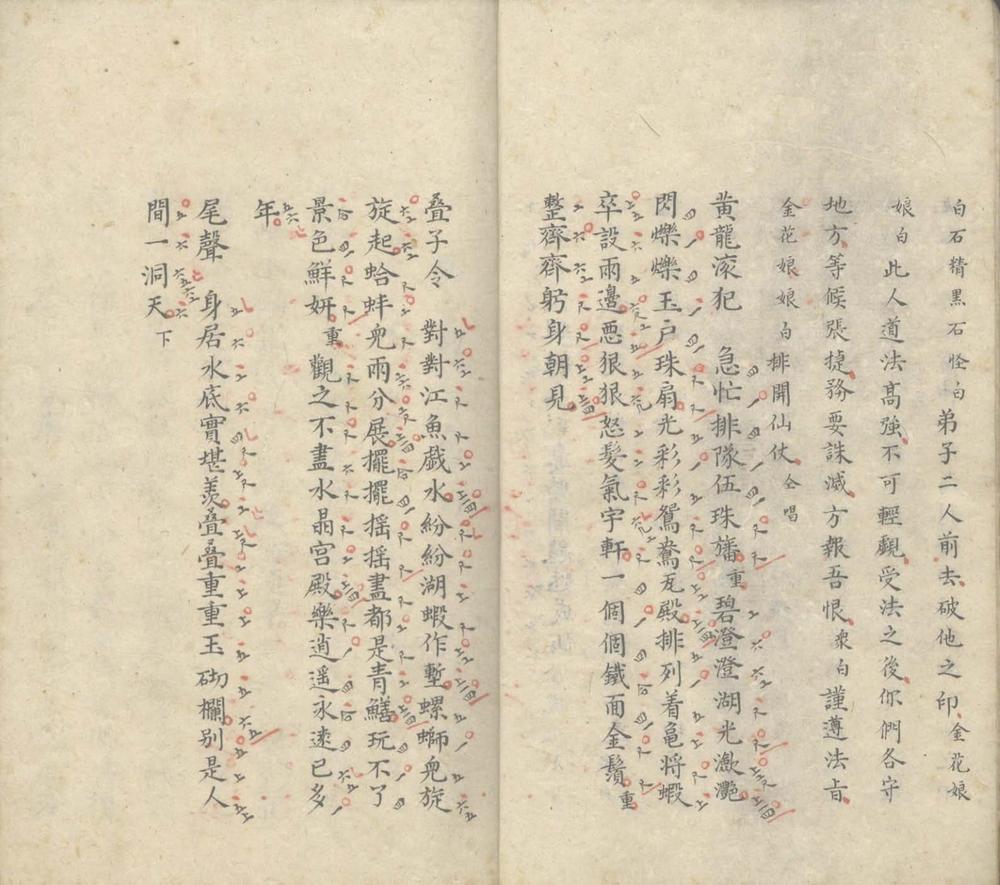 白石精黑石怪白 弟子二人前去破他之印 金花娘
娘白 此人道法高強不可輕覷受法之後你們各守
地方等候張捷務要誅滅方報吾恨 衆白 謹遵法旨
金花娘娘白 排開仙仗 仝唱
黃龍滾犯 急忙排隊伍珠旛重碧澄澄湖光潋灧
閃爍爍玉户珠扇光彩彩鴛鴦瓦殿排列着龜將蝦
卒設兩邊惡狠狠怒髮氣宇軒一個個鐵面金鬚重
整齊齊躬身朝見
叠子令 對對江魚戲水紛紛湖蝦作塹螺螄兜旋
旋起蛤蚌兜兩分展擺擺摇摇盡都是青鱔玩不了
景色鮮妍重觀之不盡水晶宮殿樂逍遥永遠已多
年
尾聲 身居水底實堪羡叠叠重重玉砌欄别是人
間一洞天 下